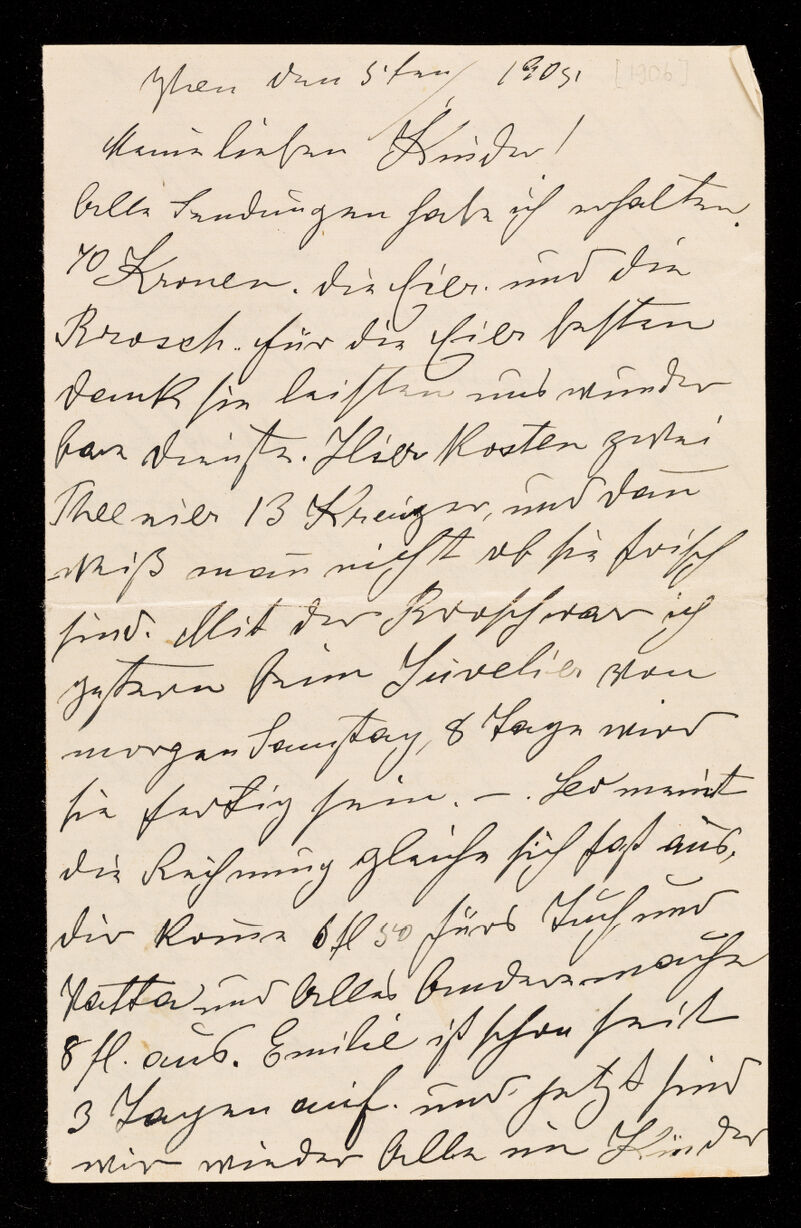 den 5ten/ 1905. [1906]
Meine lieben Kinder!
Alle Sendungen habe ich erhalten.
70 Kronen. die Eier. und die
Brosch. für die Eier besten
Dank sie leisten uns wunder
bare Dienste. Hier kosten zwei
Theeeier 13 Kreuzer, und dañ
weiß mañ nicht ob sie frisch
sind. Mit der Brosch war ich
gestern beim Juvelier von
morgen Samstag, 8 Tage wird
sie fertig sein. – . Leo meint
die Rechnung gleiche sich fast aus,
dir kom̄e 6 fl 50 fürs Tuch, und
Vatta und Alles Andere mache
8 fl. aus. Emilie ist schon seit
3 Tagen auf. und jetzt sind
wir wieder Alle im Kinder